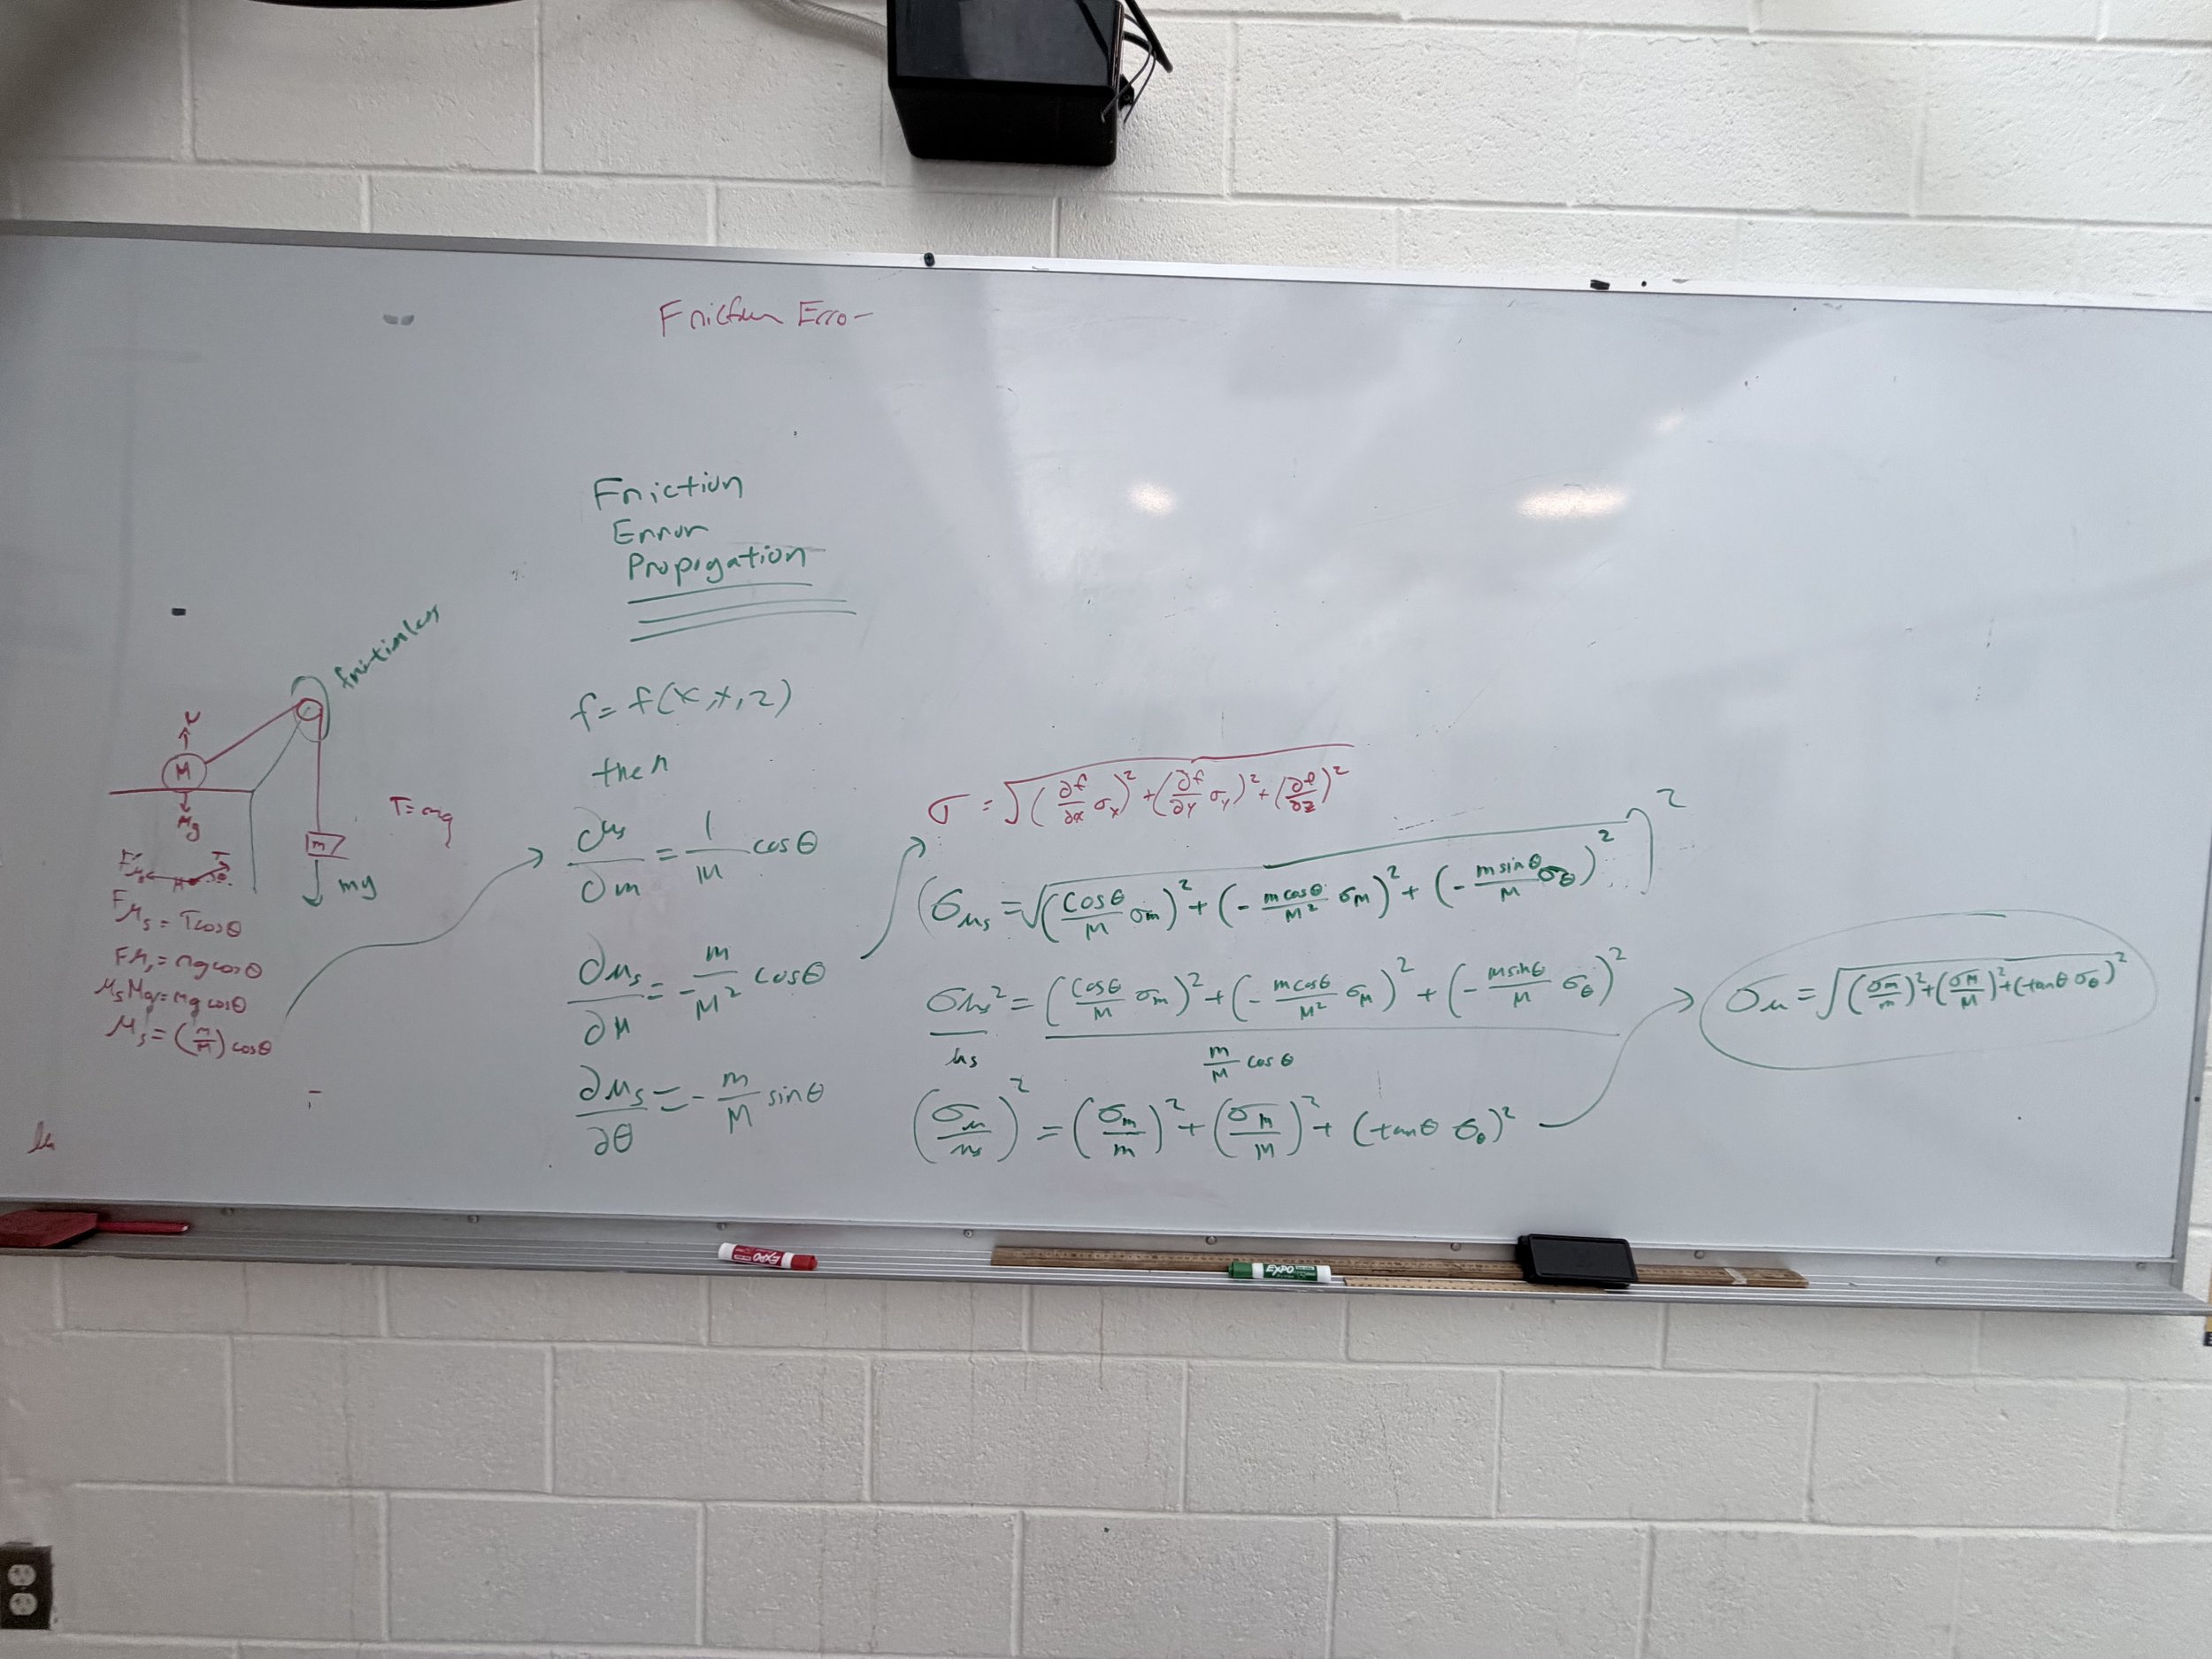 Friction Erro-
Friction
Error
Propigation
frictionless
N
M
Mg
T=mg
m
mg
T
θ
Fμs = Tcosθ
Fμs = mgcosθ
μsMg = mg cosθ
μs = (m/M) cosθ
f = f(x,y,z)
then
∂μs/∂m = 1/M cosθ
∂μs/∂M = -m/M² cosθ
∂μs/∂θ = -m/M sinθ
σ = √((∂f/∂x σx)² + (∂f/∂y σy)² + (∂f/∂z)²
(σμs = √((cosθ/M σm)² + (-mcosθ/M² σM)² + (-msinθ/M σθ)²)²
σμs²/μs = (cosθ/M σm)² + (-mcosθ/M² σM)² + (-msinθ/M σθ)² / m/M cosθ
(σμ/μs)² = (σm/m)² + (σM/M)² + (tanθ σθ)²
σμ = √((σm/m)² + (σM/M)² + (tanθ σθ)²
EXPO
EXPO